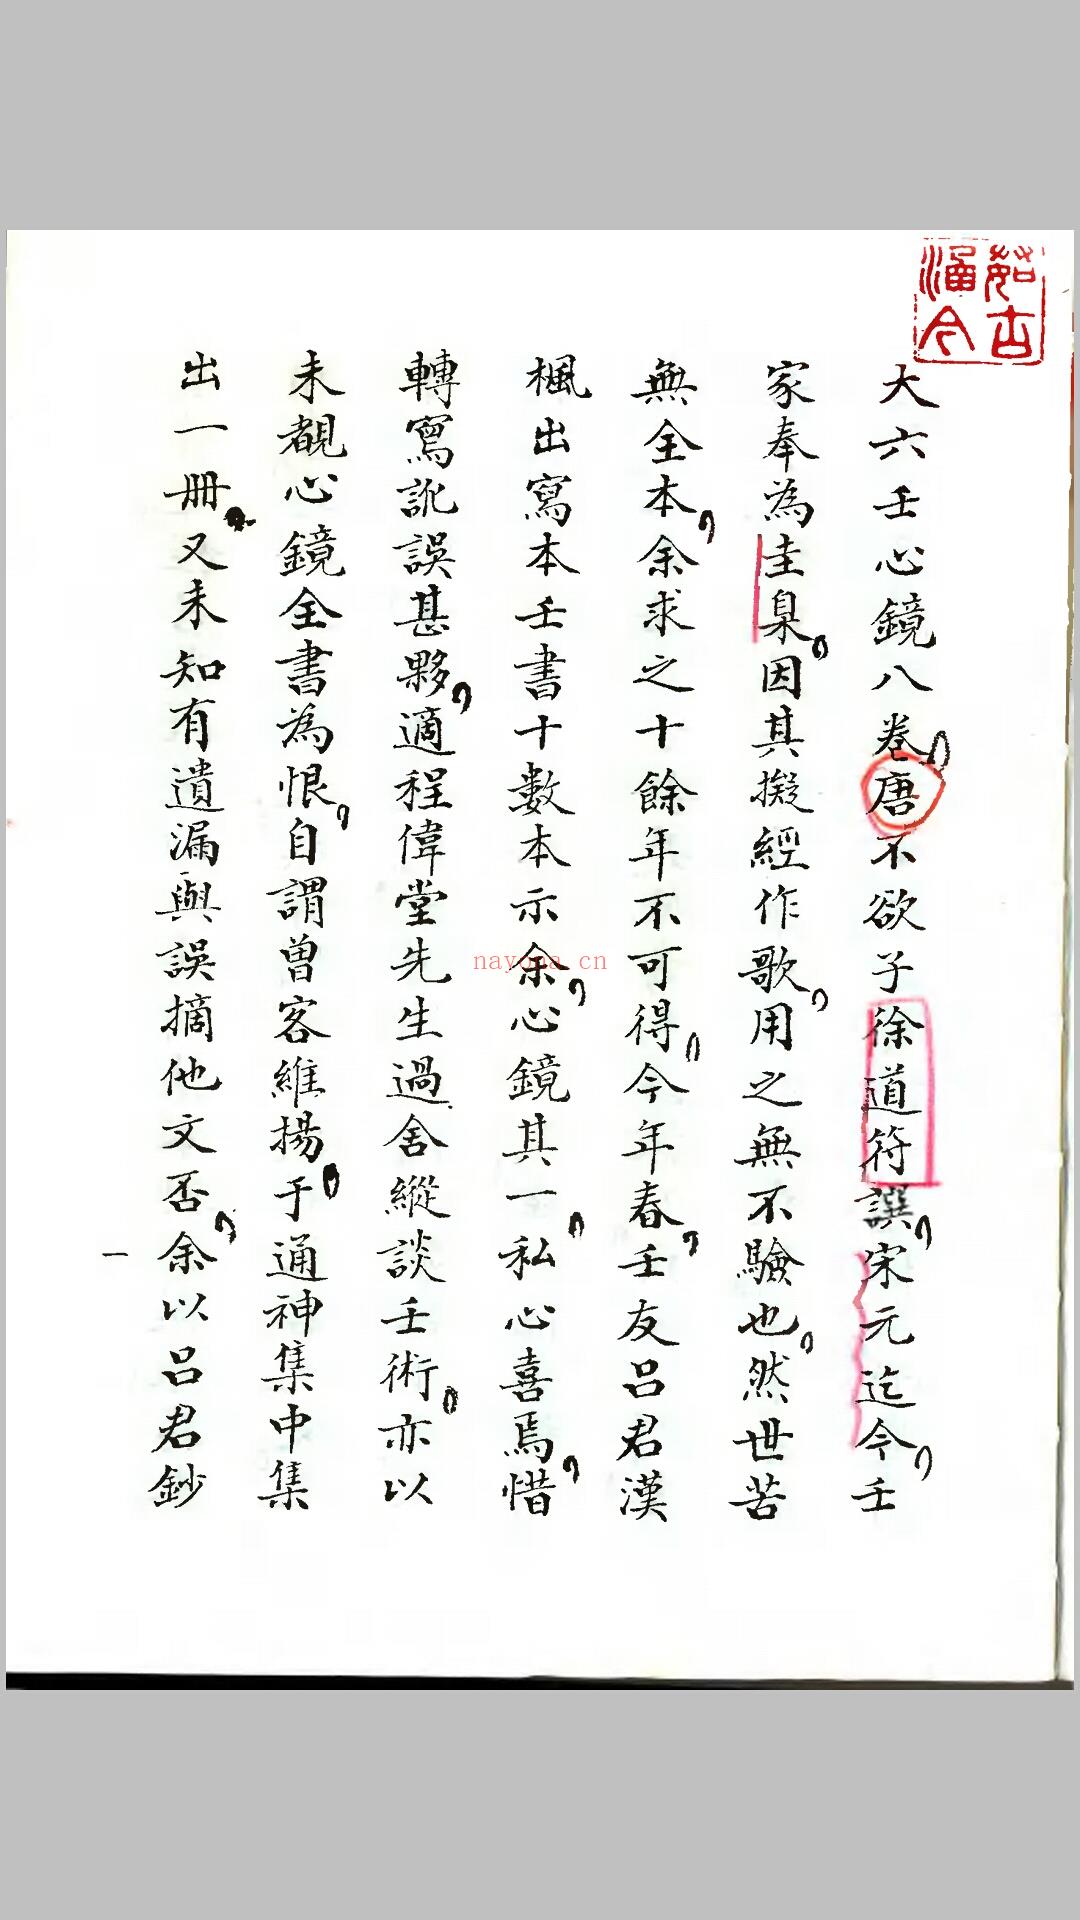 茹古
涵今
大六壬心鏡八卷唐不欲子徐道符譔宋元迄今壬
家奉為圭臬因其擬經作歌用之無不驗也然世苦
無全本余求之十餘年不可得今年春壬友呂君漢
楓出寫本壬書十數本示余心鏡其一私心喜焉惜
轉寫訛誤甚夥適程偉堂先生過舍縱談壬術亦以
未覩心鏡全書為恨自謂曾客維揚于通神集中集
出一冊又未知有遺漏與誤摘他文否余以呂君鈔
一
nayona.cn